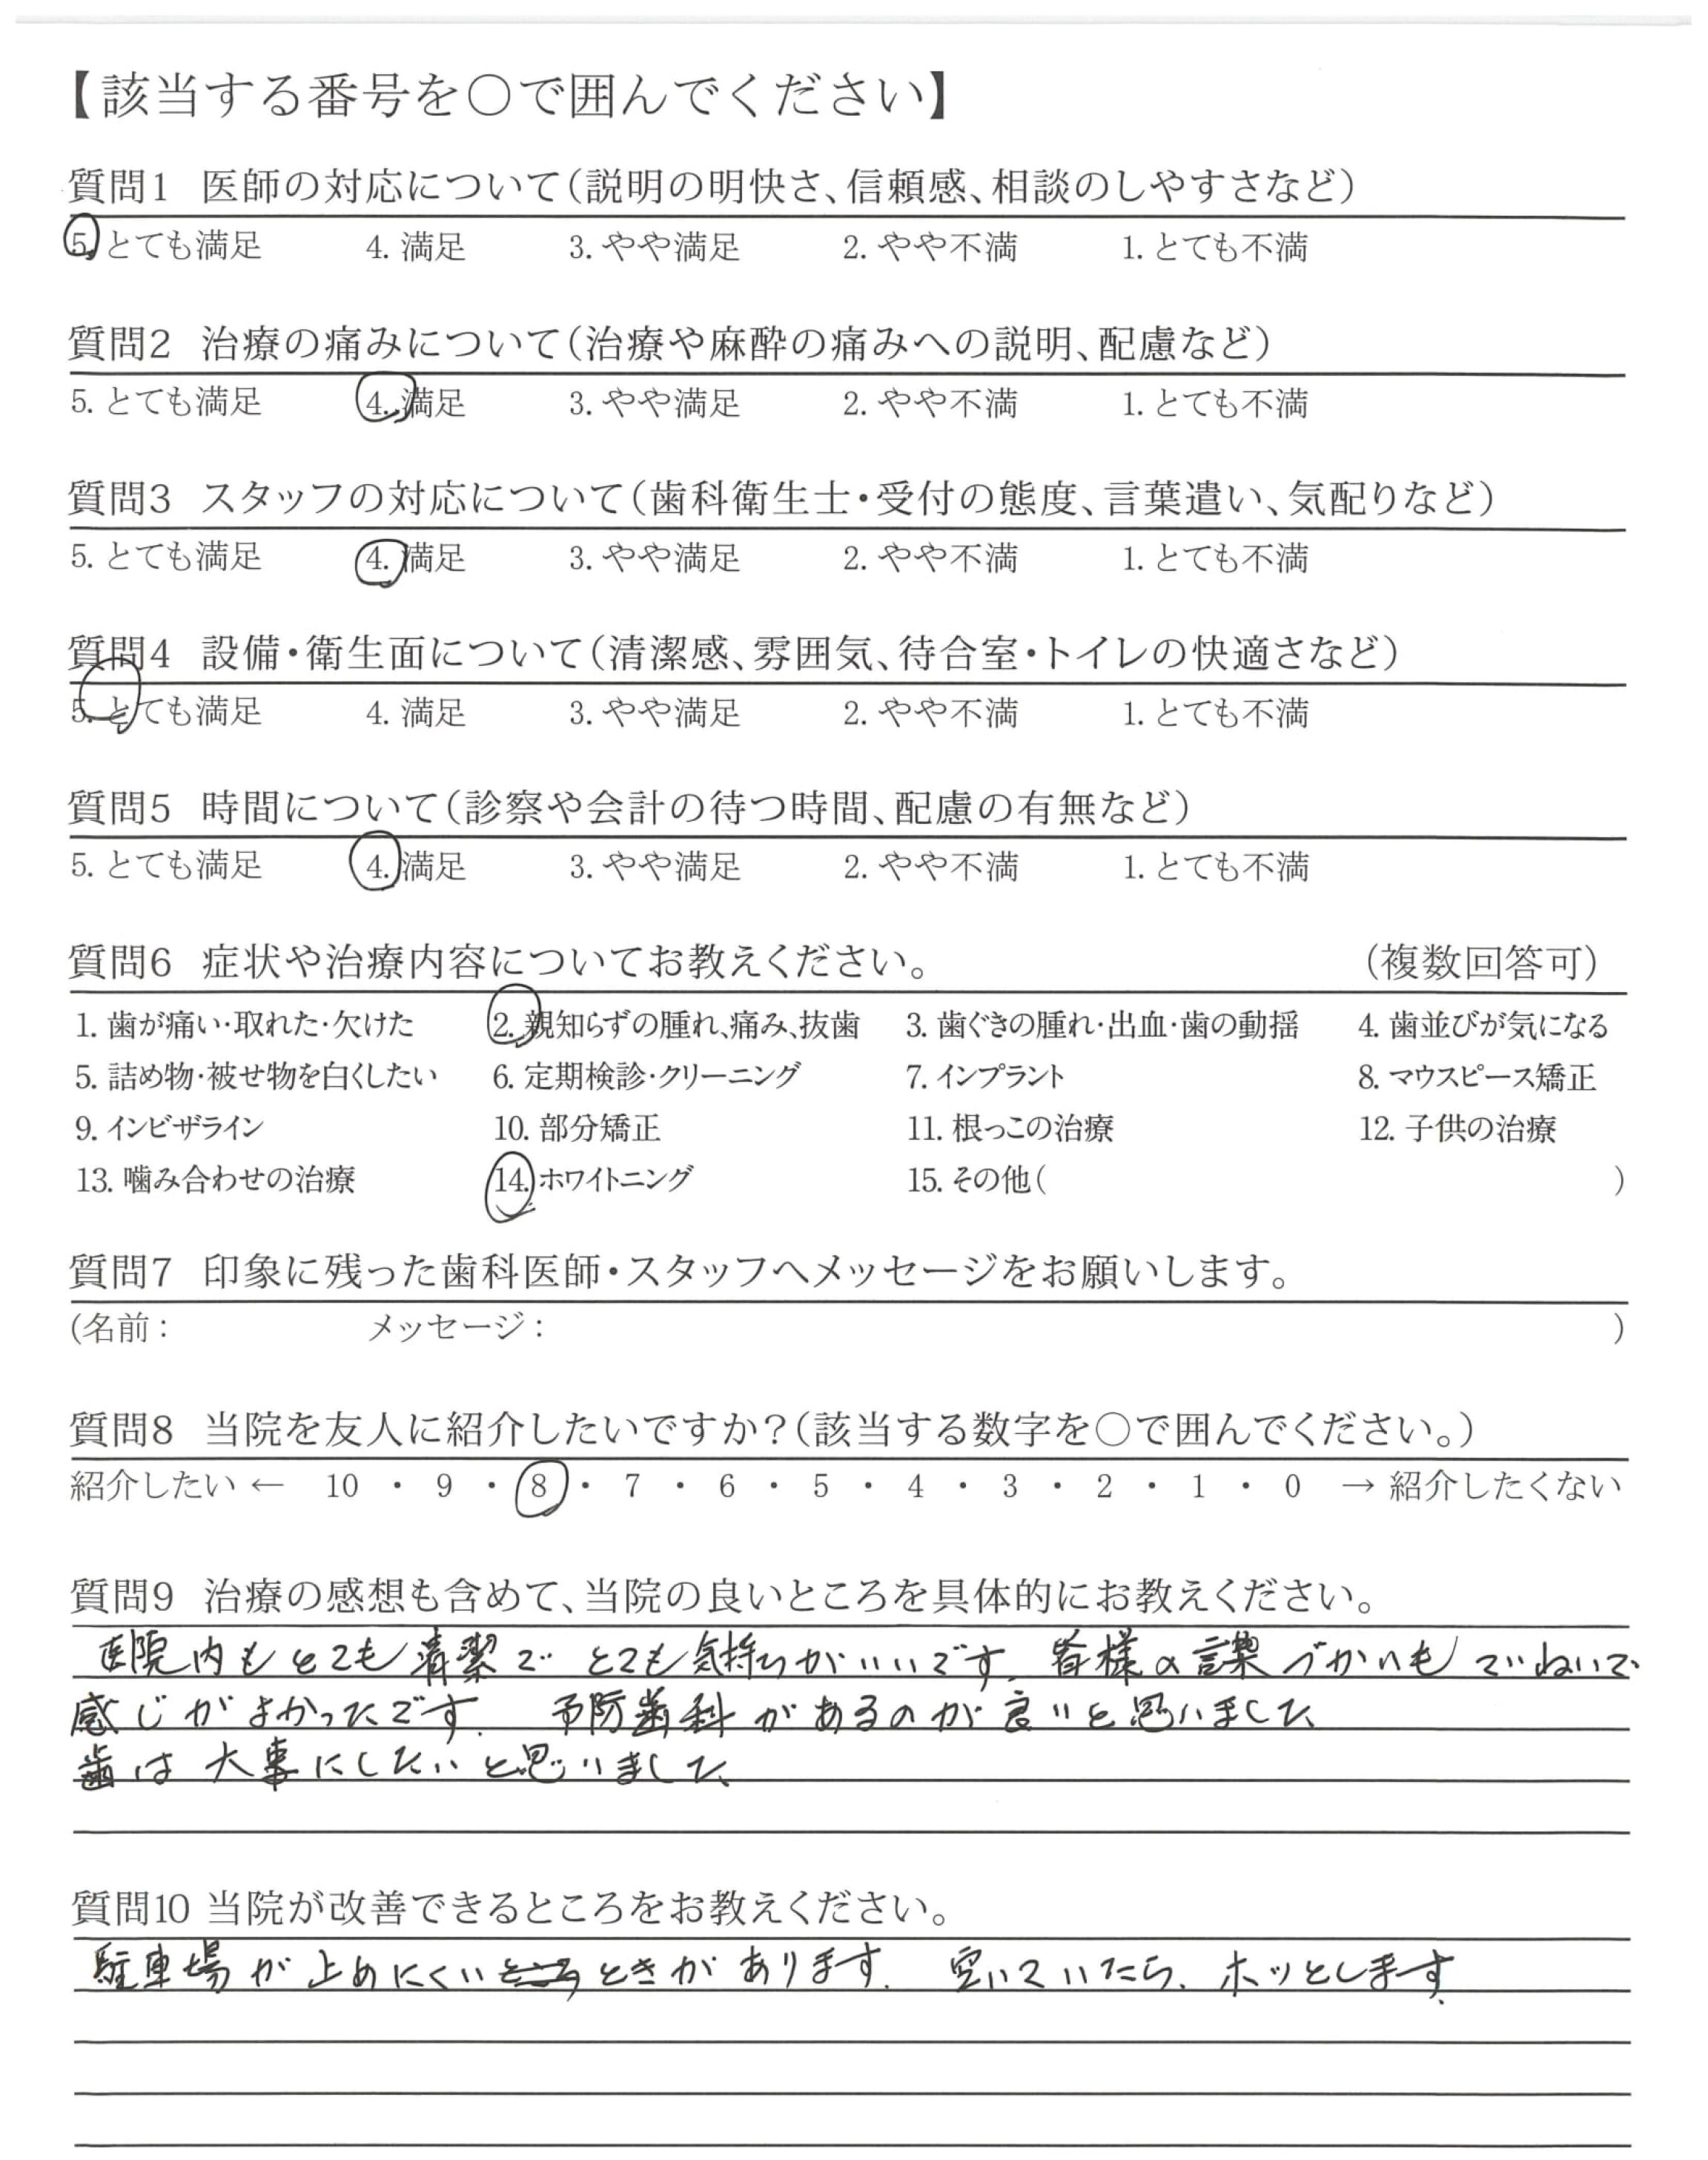 【該当する番号を○で囲んでください】
質問1 医師の対応について(説明の明快さ、信頼感、相談のしやすさなど)
5. とても満足 4. 満足 3. やや満足 2. やや不満 1. とても不満
質問2 治療の痛みについて(治療や麻酔の痛みへの説明、配慮など)
5. とても満足 4. 満足 3. やや満足 2. やや不満 1. とても不満
質問3 スタッフの対応について(歯科衛生士・受付の態度、言葉遣い、気配りなど)
5. とても満足 4. 満足 3. やや満足 2. やや不満 1. とても不満
質問4 設備・衛生面について(清潔感、雰囲気、待合室・トイレの快適さなど)
5. とても満足 4. 満足 3. やや満足 2. やや不満 1. とても不満
質問5 時間について(診察や会計の待つ時間、配慮の有無など)
5. とても満足 4. 満足 3. やや満足 2. やや不満 1. とても不満
質問6 症状や治療内容についてお教えください。 (複数回答可)
1. 歯が痛い・取れた・欠けた 2. 親知らずの腫れ、痛み、抜歯 3. 歯ぐきの腫れ・出血・歯の動揺 4. 歯並びが気になる
5. 詰め物・被せ物を白くしたい 6. 定期検診・クリーニング 7. インプラント 8. マウスピース矯正
9. インビザライン 10. 部分矯正 11. 根っこの治療 12. 子供の治療
13. 噛み合わせの治療 14. ホワイトニング 15. その他( )
質問7 印象に残った歯科医師・スタッフへメッセージをお願いします。
(名前: メッセージ: )
質問8 当院を友人に紹介したいですか?(該当する数字を○で囲んでください。)
紹介したい ← 10 ・ 9 ・ 8 ・ 7 ・ 6 ・ 5 ・ 4 ・ 3 ・ 2 ・ 1 ・ 0 → 紹介したくない
質問9 治療の感想も含めて、当院の良いところを具体的にお教えください。
医院内もとても清潔で とても気持ちがいいです。皆様の言葉づかいもていねいで
感じがよかったです。 予防歯科があるのが良いと思いました
歯は大事にしたいと思いました。
質問10 当院が改善できるところをお教えください。
駐車場が止めにくいところときがあります。 空いていたら、ホッとします。